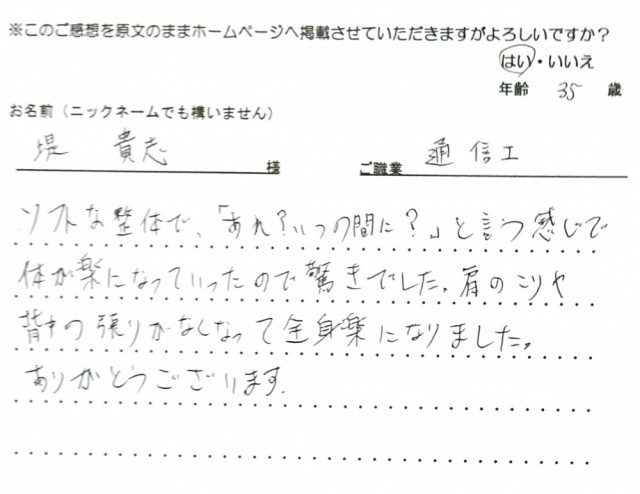 ※このご感想を原文のままホームページへ掲載させていただきますがよろしいですか？
はい・いいえ
年齢 35 歳
お名前（ニックネームでも構いません）
堤 貴志 様 ご職業 通信工
ソフトな整体で、「あれ？いつの間に？」と言う感じで
体が楽になっていったので驚きでした。肩のコリや
背中の張りがなくなって全身楽になりました。
ありがとうございます。